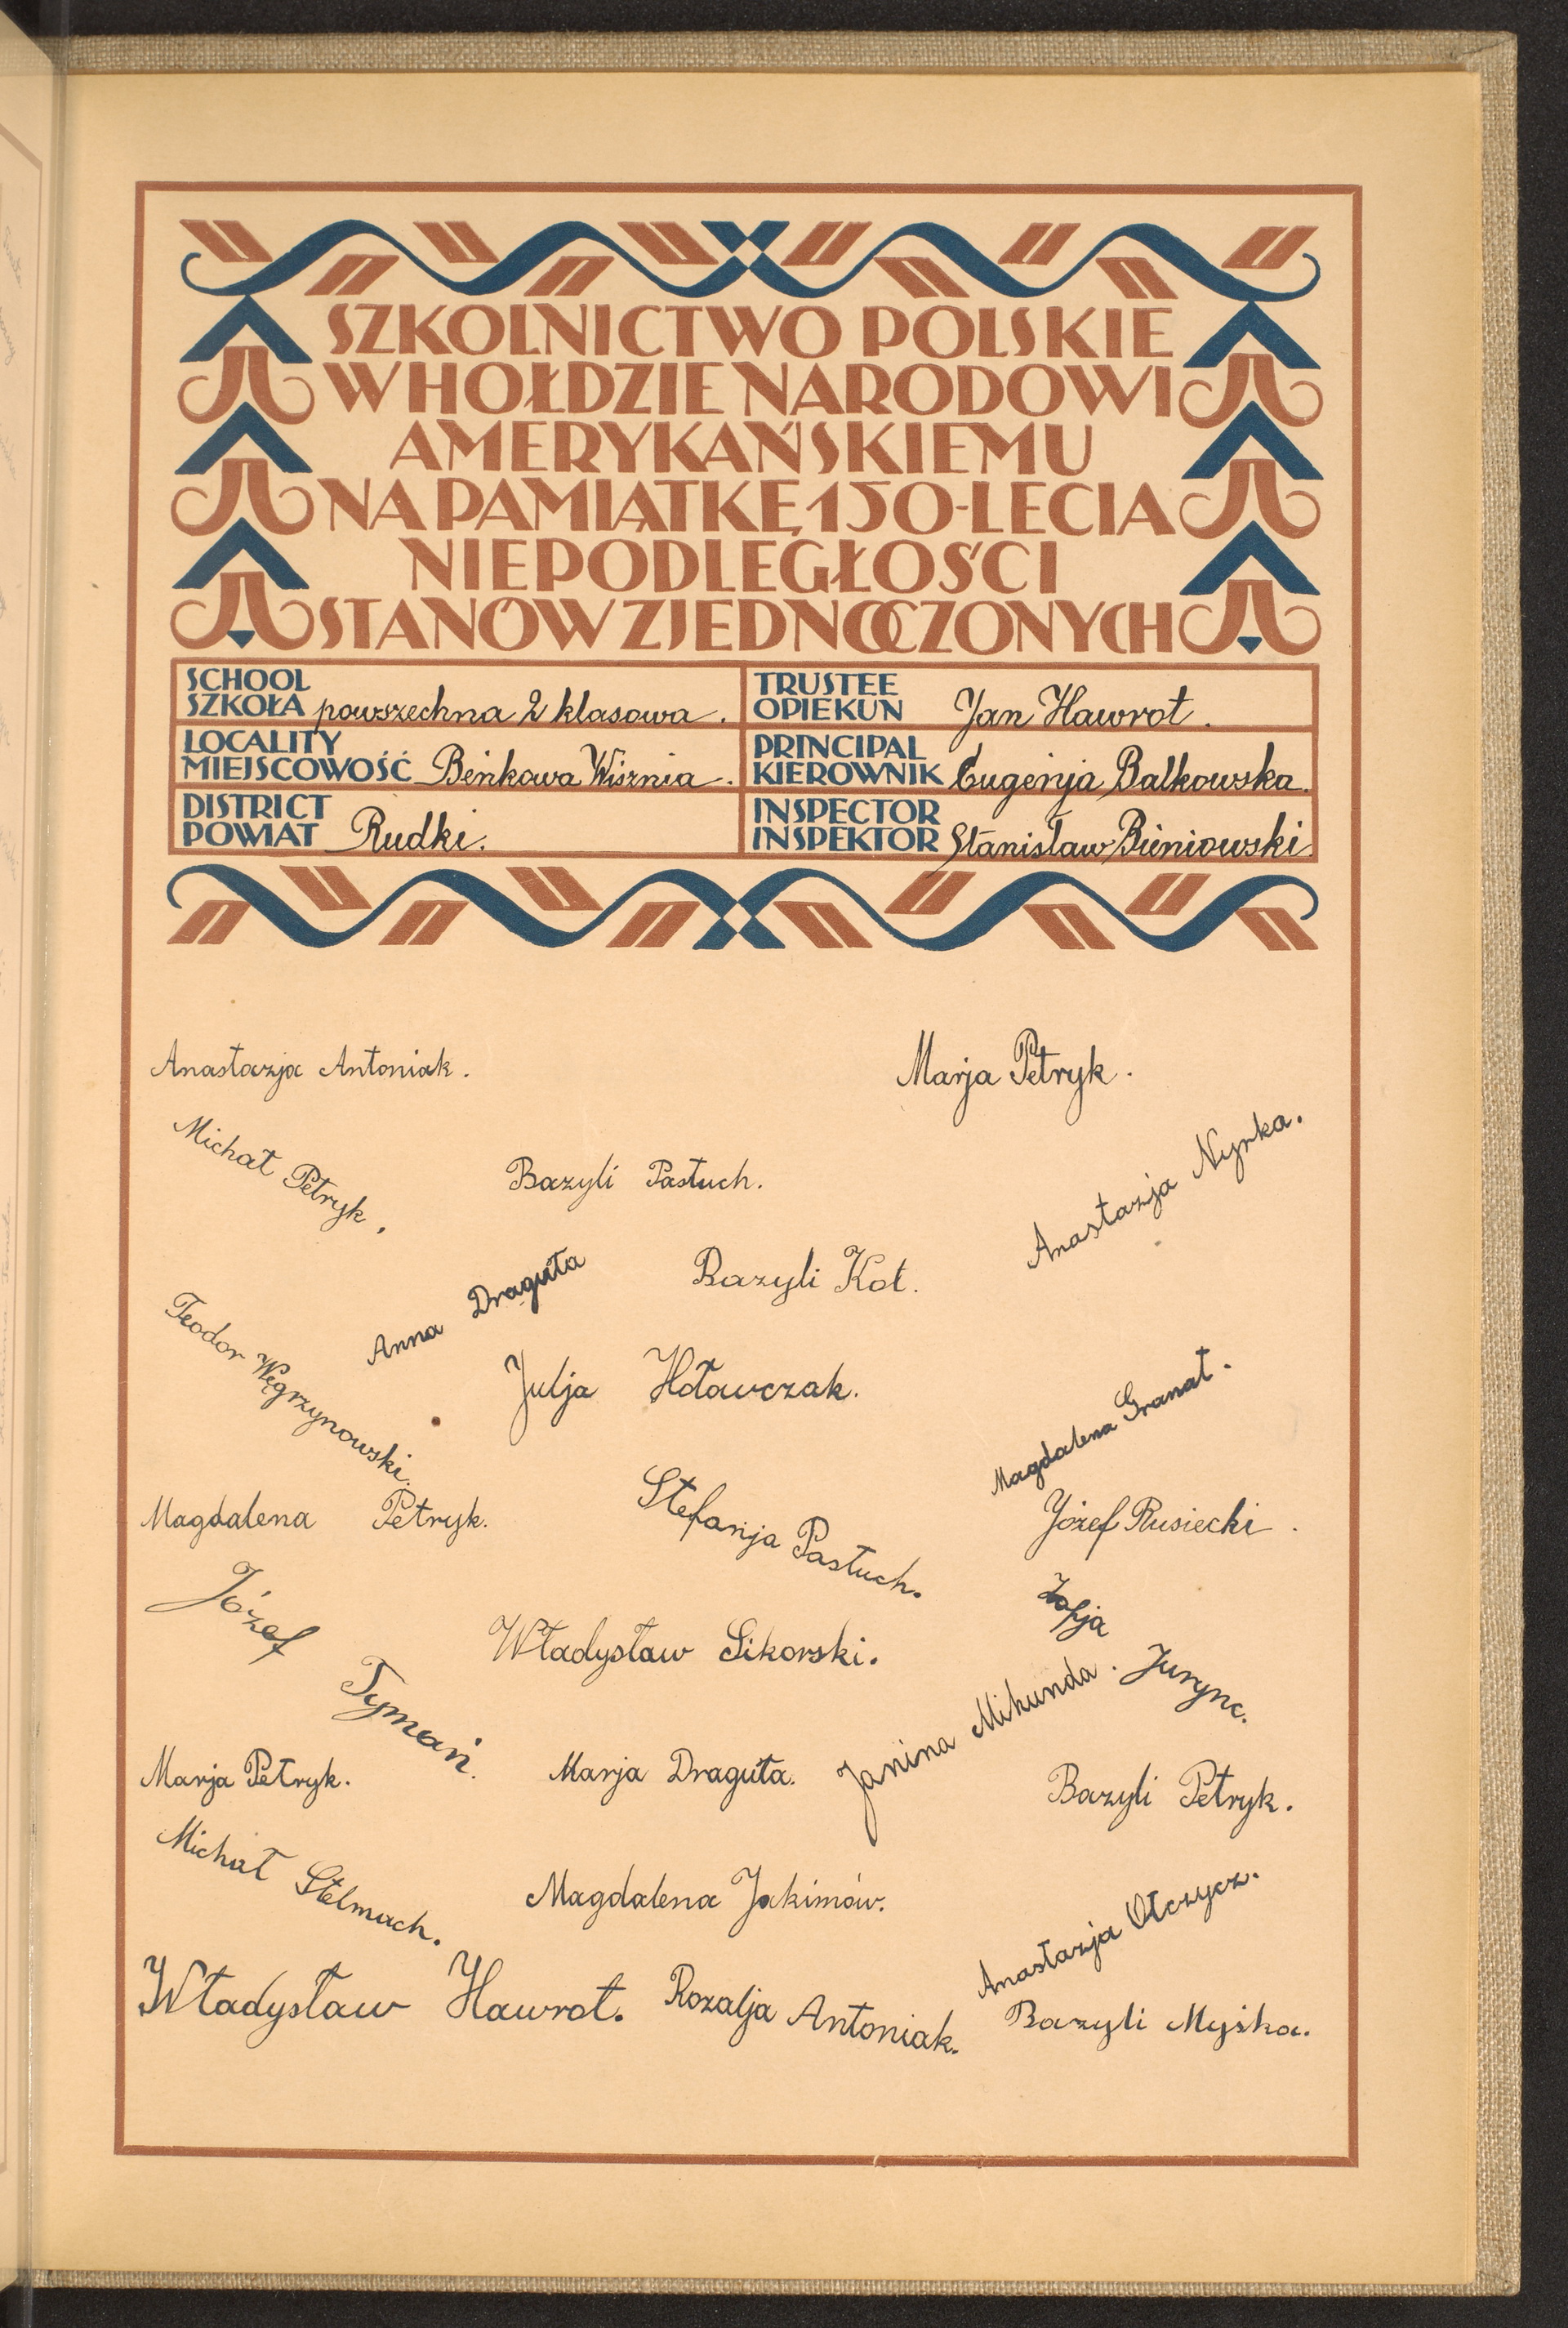 SZKOLNICTWO POLSKIE
W HOŁDZIE NARODOWI
AMERYKAŃSKIEMU
NA PAMIĄTKĘ 150-LECIA
NIEPODLEGŁOŚCI
STANÓW ZJEDNOCZONYCH
SCHOOL
SZKOŁA powszechna 2 klasowa.
TRUSTEE
OPIEKUN Jan Hawrot.
LOCALITY
MIEJSCOWOŚĆ Beńkowa Wisznia.
PRINCIPAL
KIEROWNIK Eugenja Balkowska.
DISTRICT
POWIAT Rudki.
INSPECTOR
INSPEKTOR Stanisław Bieniowski.
Anastazja Antoniak.
Marja Petryk.
Michał Petryk.
Bazyli Pastuch.
Anastazja Nyrka.
Anna Draguła
Bazyli Kot.
Teodor Węgrzynowski.
Julja Hławczak.
Magdalena Granat.
Magdalena Petryk.
Stefanja Pastuch.
Józef Rusiecki.
Józef Tymań.
Władysław Sikorski.
Zofja Jurync.
Janina Mikunda.
Marja Petryk.
Marja Draguła.
Bazyli Petryk.
Michał Stelmach.
Magdalena Jakimów.
Anastazja Ołczycz.
Władysław Hawrot.
Rozalja Antoniak.
Bazyli Myśka.